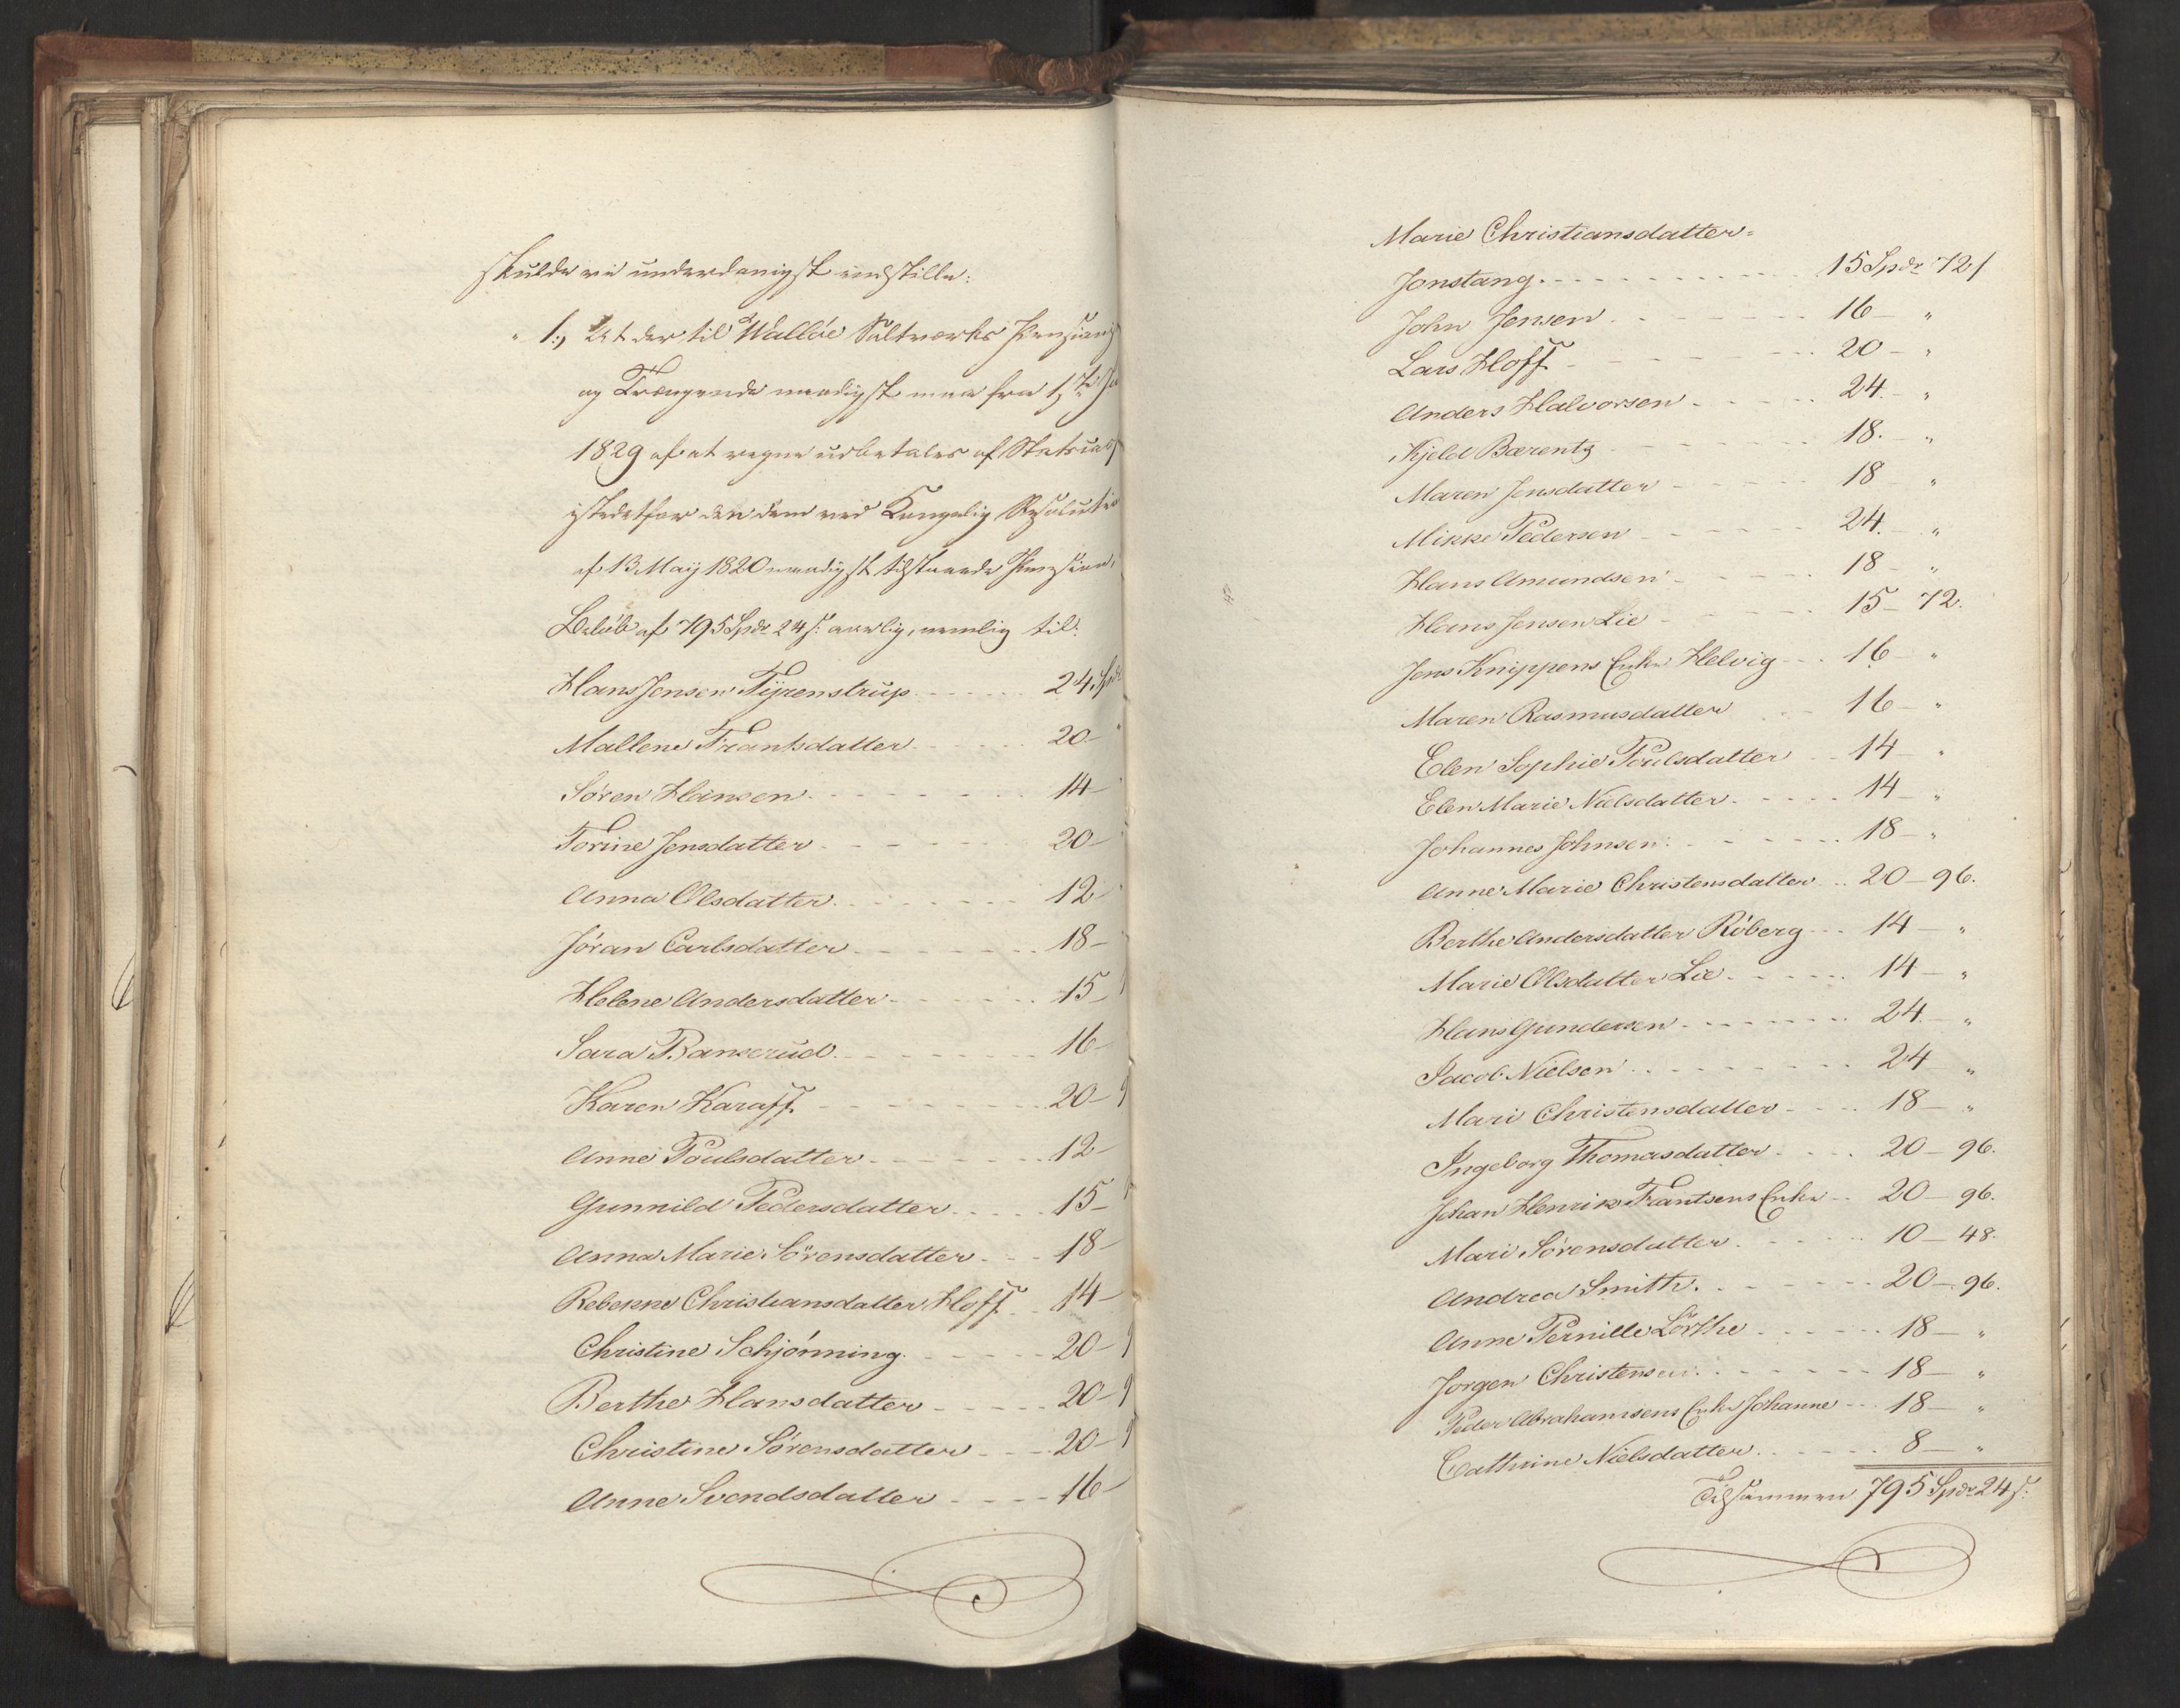 skulde vi underdanigst indstille:
" 1., At der til Walløe Saltværks Pensions
og Trængende naadigst maa fra 1ste
1829 af at regne udbetales af Statscas
istedetfor den dem ved Kongelig Resolution
af 13 Maij 1820 naadigst tilstaaede Pensions
Beløb af 795 Spdr 24 s. aarlig, nemlig til:
Hans Jensen Tyrenstrup 24 Spdr
Mallene Frantsdatter 20 -
Søren Hansen 14 -
Torine Jensdatter 20 -
Anna Olsdatter 12 -
Jøran Carlsdatter 18 -
Helene Andersdatter 15 -
Sara Banserud 16 -
Karen Karaff 20 -
Anne Poulsdatter 12 -
Gunnild Pedersdatter 15 -
Anna Marie Sörensdatter 18 -
Rebekke Christiansdatter Hoff 14 -
Christine Schjønning 20 -
Berthe Hansdatter 20 -
Christine Sørensdatter 20 -
Anne Svendsdatter 16 -
Marie Christiansdatter =
Jonstang 15 Spdr 72 s
John Jensen 16 - "
Lars Hoff 20 - "
Anders Halvorsen 24 - "
Kjeld Barentz 18. - "
Maren Jensdatter 18 - "
Mikke Pedersen 24. - "
Hans Amundsen 18 - "
Hans Jensen Lie 15 - 72.
Jens Knippens Enke Helvig 16 - "
Maren Rasmusdatter 16 - "
Elen Sophie Poulsdatter 14 - "
Elen Marie Nielsdatter 14 - "
Johannes Johnsen 18 - "
Anne Marie Christensdatter 20 - 96.
Berthe Andersdatter Röberg 14 - "
Marie Olsdatter Lie 14 - "
Hans Gundersen 24 - "
Jacob Nielsen 24 "
Mari Christensdatter 18 - "
Ingeborg Thomasdatter 20 - 96.
Johan Henrik Frantsens Enke 20 - 96.
Mari Sörensdatter 10 - 48.
Andrea Smith 20 - 96.
Anne Pernille Lörthe 18 - "
Jørgen Christensen 18 - "
Peder Abrahamsens Enke Johanne 18 - "
Cathrine Nielsdatter 8 - "
Tilsammen 795 Spdr 24 s.